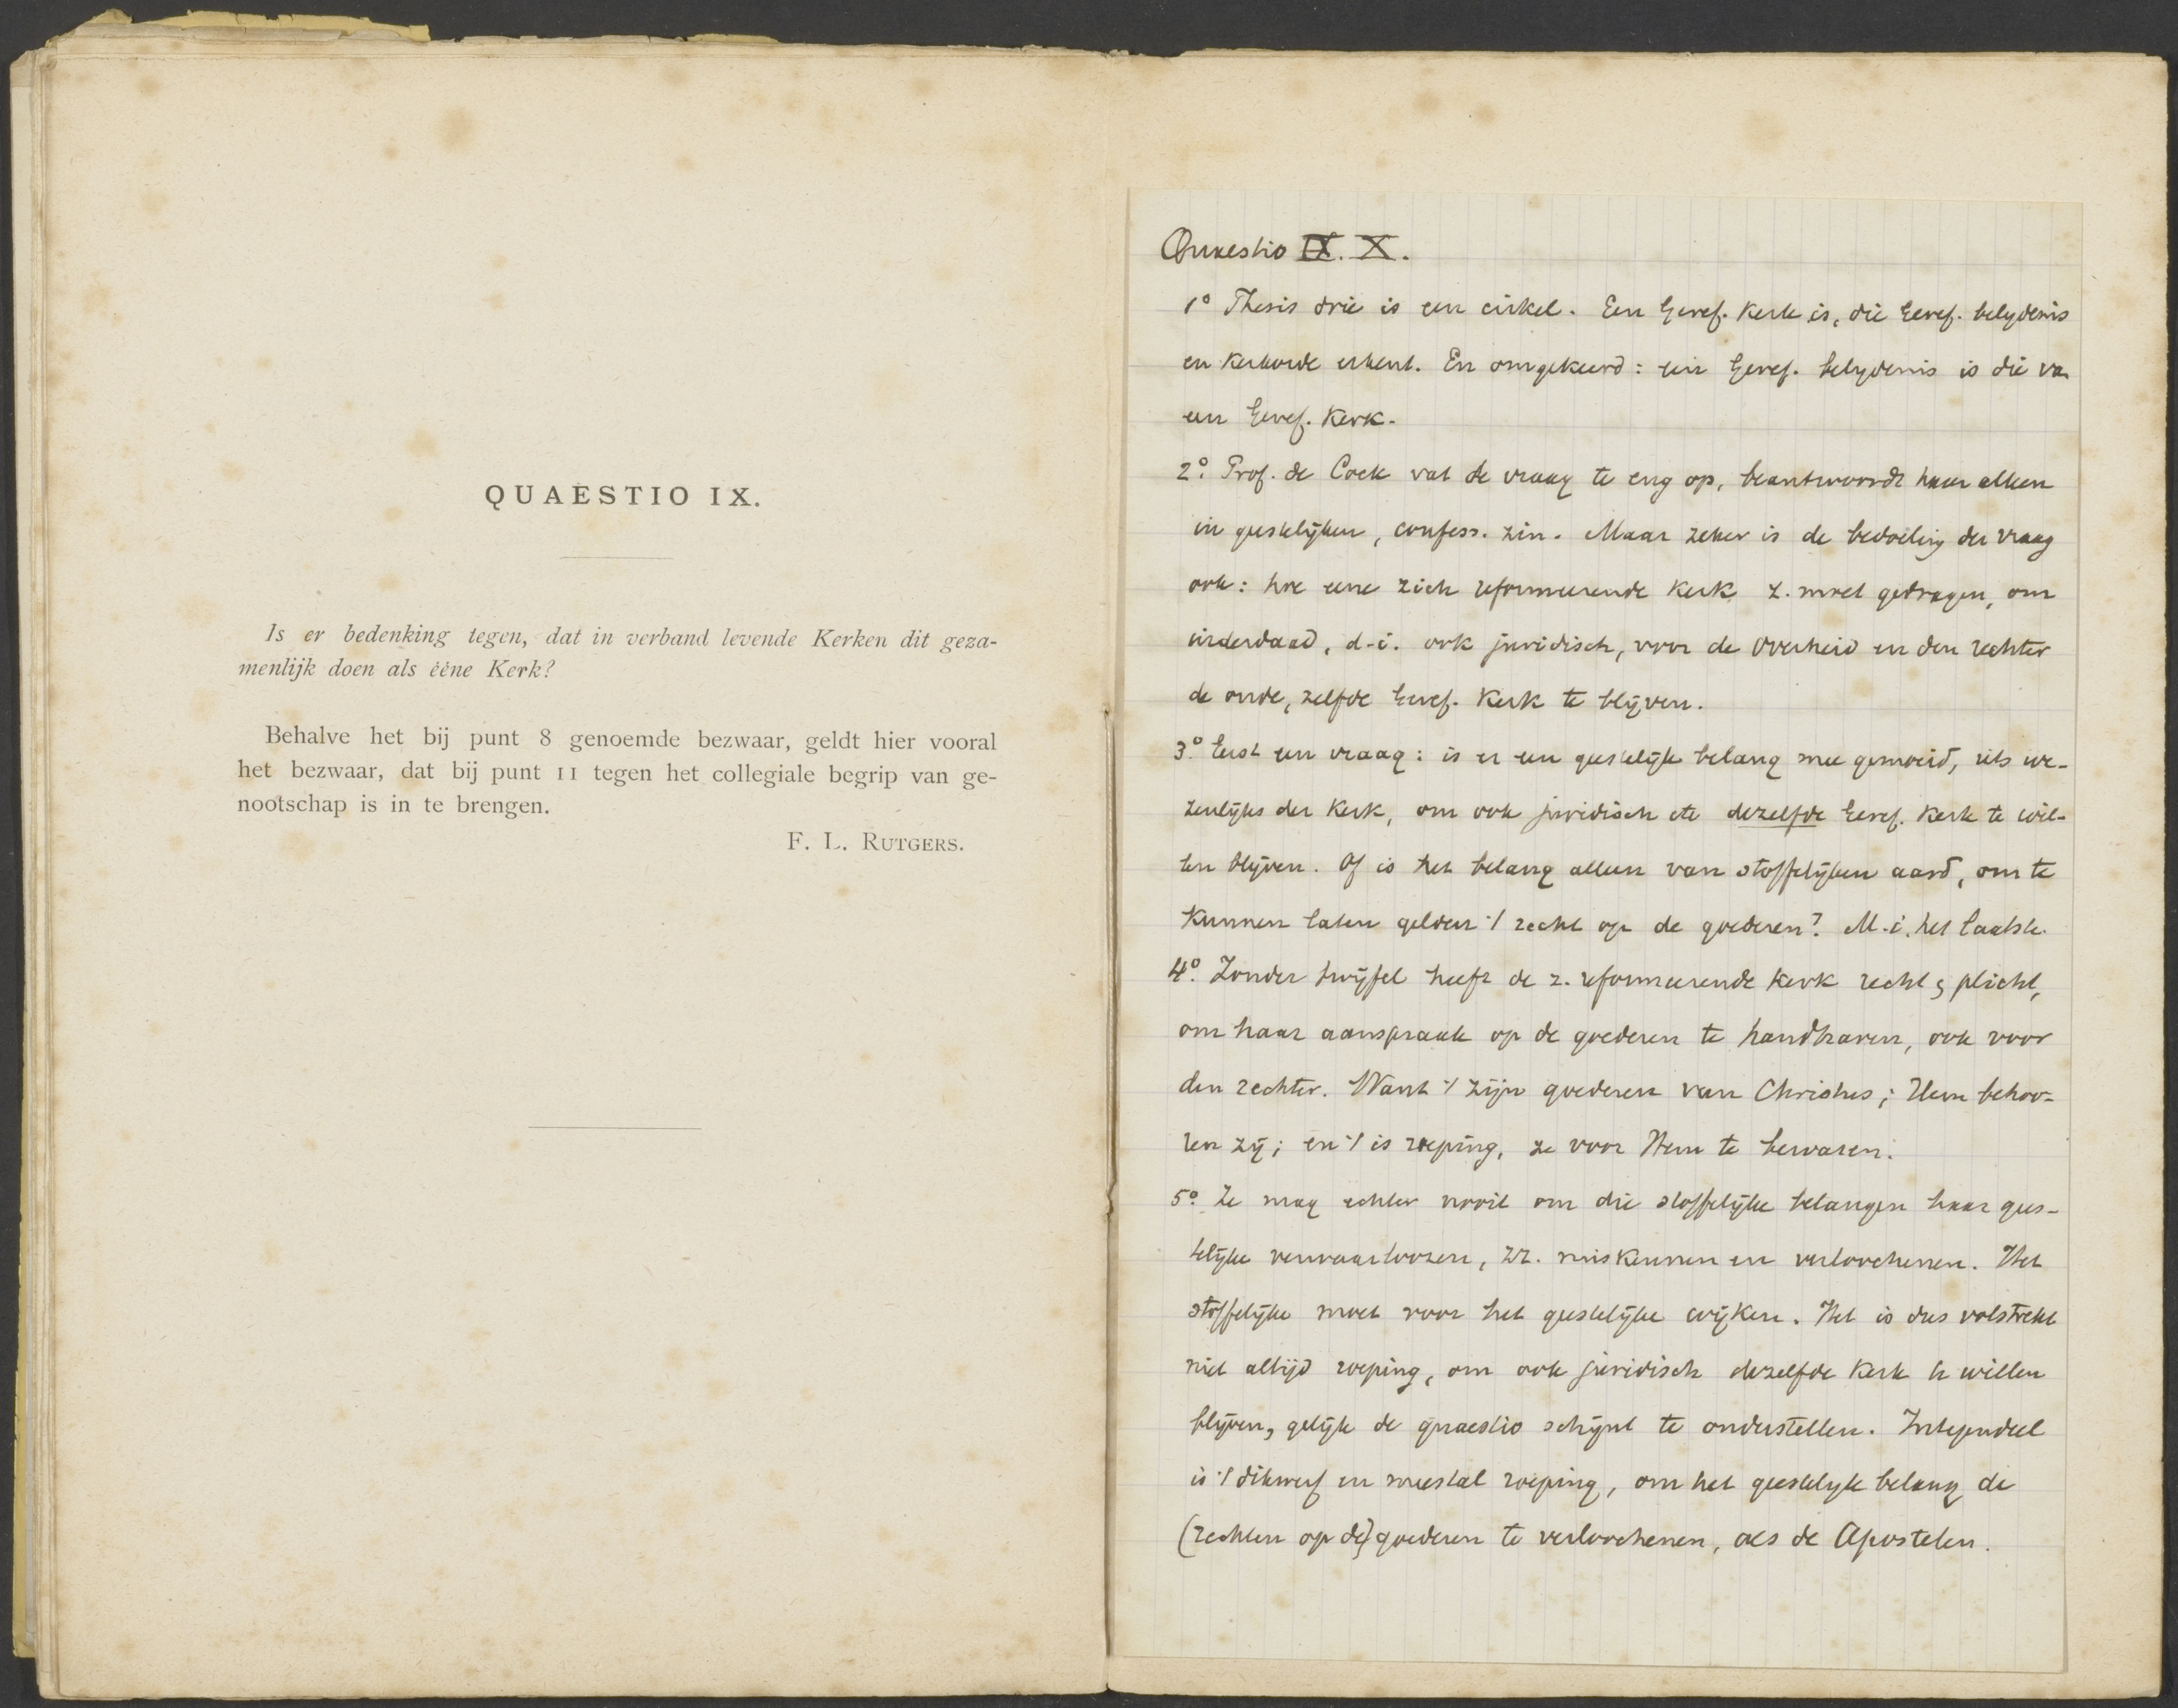 QUAESTIO IX.
Is er bedenking tegen, dat in verband levende Kerken dit geza-
menlijk doen als ééne Kerk?
Behalve het bij punt 8 genoemde bezwaar, geldt hier vooral
het bezwaar, dat bij punt 11 tegen het collegiale begrip van ge-
nootschap is in te brengen.
F. L. RUTGERS.
Quaestio IX. X.
1° Thesis drie is een cirkel. Een Geref. Kerk is, die Geref. belydenis
en Kerkorde erkent. En omgekeerd: een Geref. belydenis is die van
een Geref. Kerk.
2° Prof. de Cock vat de vraag te eng op, beantwoordt haar alleen
in geestelijken, confess. zin. Maar zeker is de bedoeling der vraag
ook: hoe eene zich reformeerende Kerk z. moet gedragen, om
inderdaad, d.i. ook juridisch, voor de Overheid en den rechter
de oude, zelfde Geref. Kerk te blijven.
3° Eerst een vraag: is er een geestelijk belang mee gemoeid, iets we-
zenlijks der Kerk, om ook juridisch etc dezelfde Geref. Kerk te wil-
len blijven. Of is het belang alleen van stoffelijken aard, om te
Kunnen laten gelden 't recht op de goederen? M.i. het laatste.
4° Zonder twijfel heeft de z. reformeerende Kerk recht & plicht,
om haar aanspraak op de goederen te handhaven, ook voor
den rechter. Want 't zijn goederen van Christus; Hem behoo-
ren zij; en 't is roeping, ze voor Hem te bewaren.
5° Ze mag echter nooit om die stoffelijke belangen haar gees-
telijke verwaarloozen, miskennen en verloochenen. Het
stoffelijke moet voor het geestelijke wijken. Het is dus volstrekt
niet altijd roeping, om ook juridisch dezelfde Kerk te willen
blijven, gelijk de quaestio schijnt te onderstellen. Integendeel
is 't dikwerf en meestal roeping, om het geestelyk belang de
(rechten op de) goederen te verloochenen, als de Apostelen.